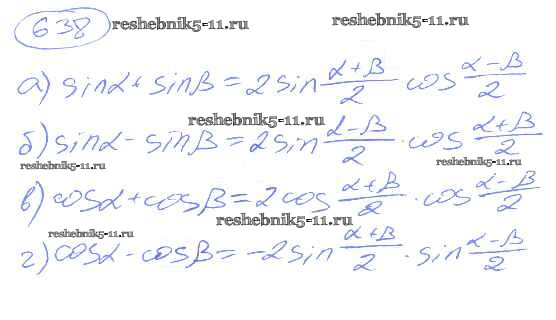 638 reshebnik5-11.ru reshebnik5-11.ru
а) sinα + sinβ = 2 sin (α+β)/2 · cos (α-β)/2
reshebnik5-11.ru
б) sinα - sinβ = 2 sin (α-β)/2 · cos (α+β)/2
reshebnik5-11.ru reshebnik5-11.ru
в) cosα + cosβ = 2 cos (α+β)/2 · cos (α-β)/2
reshebnik5-11.ru reshebnik5-11.ru
г) cosα - cosβ = -2 sin (α+β)/2 · sin (α-β)/2